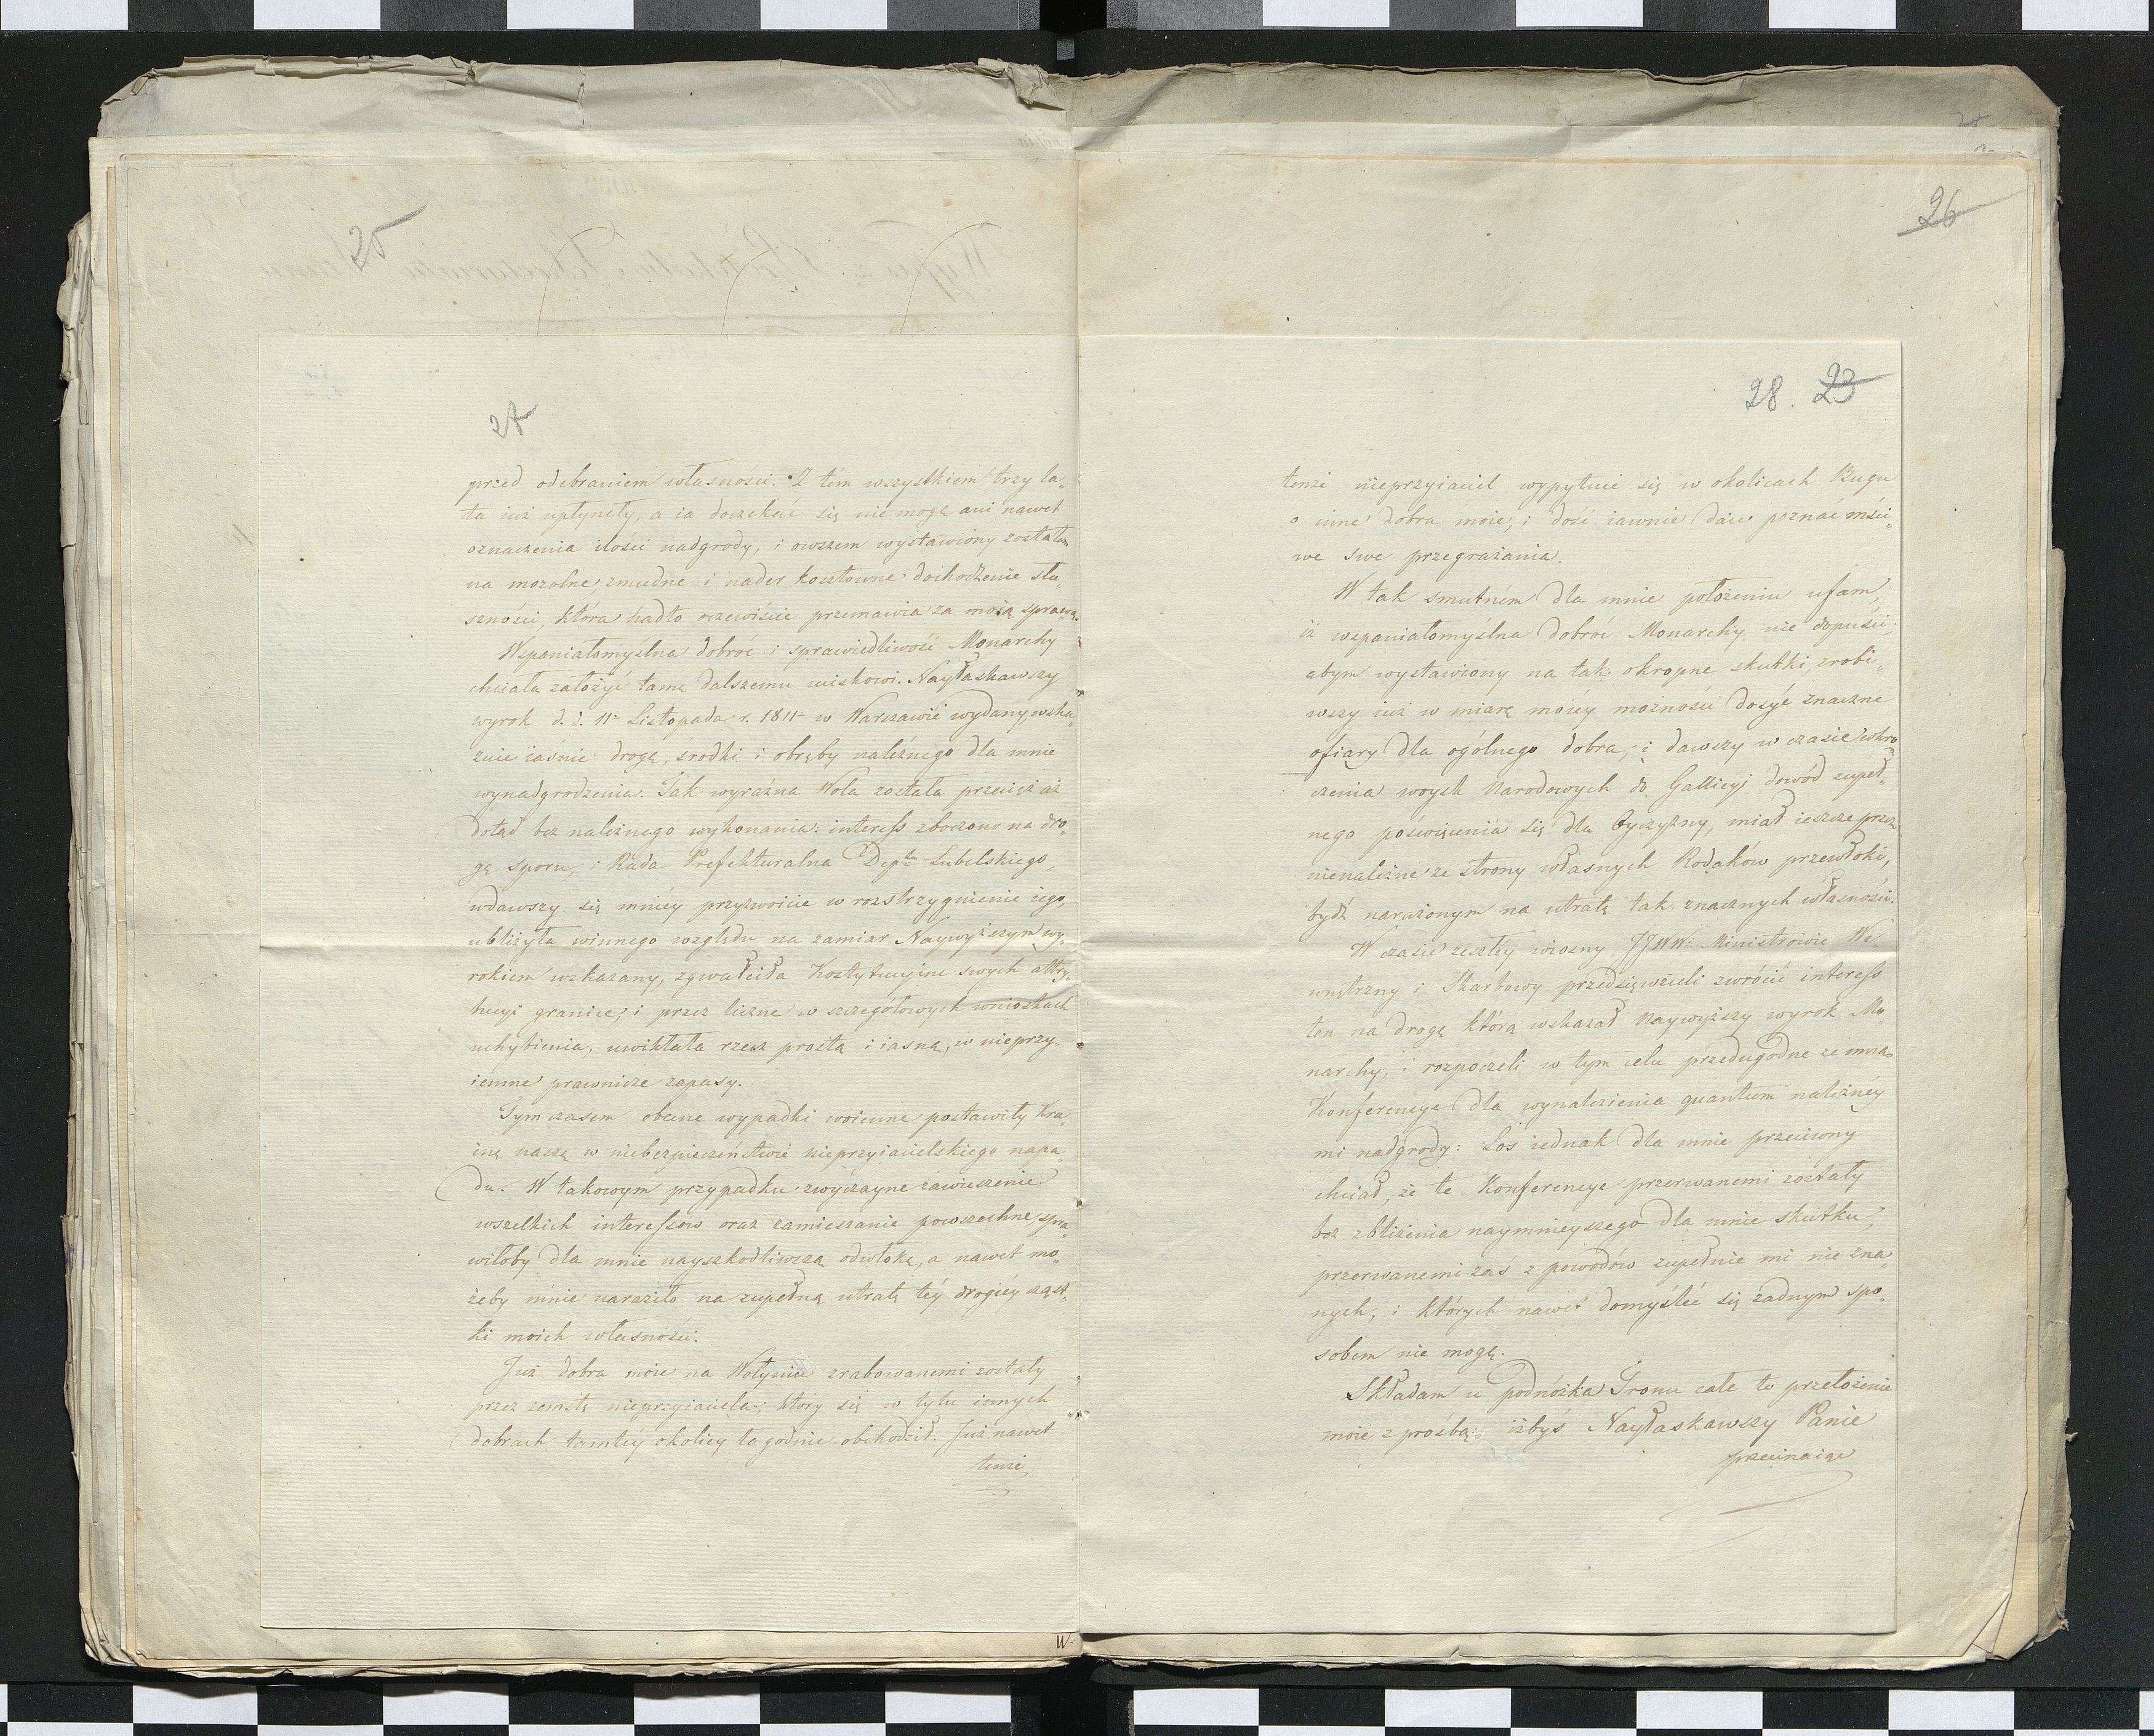 25
27
przed odebraniem własności. Z tém wszystkiem trzy la„
ta iuż upłynęły, a ia doczekać się nie mogę ani nawet
oznaczenia ilości nadgrody, i owszem wystawiony zostałem
na mozolne, żmudne i nader kosztowne dochodzenie słu„
szności, która nadto oczewiście przemawia za moią sprawą.
Wspaniałomyślna dobroć i sprawiedliwość Monarchy
chciała założyć tamę dalszemu uciskowi. Nayłaskawszy
wyrok d. d. 11 Listopada r. 1811 w Warszawie wydany, wska„
zuie iaśnie drogę, środki i obręby należnego dla mnie
wynadgrodzenia. Tak wyraźna Wola została przecież aż
dotąd bez należnego wykonania: interess zboczono na dro„
gę sporu, i Rada Prefekturalna Depttu Lubelskiego,
wdawszy się mniéy przyzwoicie w rozstrzygnienie iego,
ubliżyła winnego względu na zamiar Naywyższym wy„
rokiem wskazany, zgwałciła Kostytucyine swych attry„
bucyi granice, i przez liczne w szczegółowych wnioskach
uchybienia, uwikłała rzecz prostą i iasną, w nieprzy„
iemne prawnicze zapasy.
Tymczasem obecne wypadki woienne postawiły Kra„
inę naszą w niebezpieczeństwie nieprzyiacielskiego napa„
du. W takowym przypadku zwyczayne zawieszenie
wszelkich interessów oraz zamieszanie powszechne, spra„
wiłoby dla mnie nayszkodliwszą odwłokę, a nawet mo„
żeby mnie naraziło na zupełną utratę téy drogiéy cząst„
ki moich własności.
Już dobra moie na Wołyniu zrabowanemi zostały
przez zemstę nieprzyiaciela, który się w tylu innych
dobrach tamtéy okolicy łagodnie obchodził. Już nawet
tenże
26
28. 23
tenże nieprzyiaciel wypytuie się w okolicach Bugu
o inne dobra moie, i dość iawnie daie poznać mści„
we swe przegrażania.
W tak smutnem dla mnie położeniu ufam,
iż wspaniałomyślna dobroć Monarchy nie dopuści,
abym wystawiony na tak okropne skutki, zrobi„
wszy iuż w miarę moiéy możności dosyć znaczne
ofiary dla ogólnego dobra, i dawszy w czasie wkro„
czenia woysk Narodowych do Gallicyi dowód zupeł„
nego poświęcenia się dla Oyczyzny, miał ieszcze przez
nienależne ze strony własnych Rodaków przewłoki,
bydź narażonym na utratę tak znacznych własności.
W czasie zeszłéy wiosny JJWW: Ministrowie We„
wnętrzny i Skarbowy przedsięwzieli zwrócić interess
ten na drogę którą wskazał Naywyższy wyrok Mo„
narchy, i rozpoczeli w tym celu przedugodne ze mną
Konferencye dla wynalezienia quantum należnéy
mi nadgrody: Los iednak dla mnie przeciwny
chciał, że te Konferencye przerwanemi zostały
bez zbliżenia naymnieyszego dla mnie skutku,
przerwanemi zaś z powodów zupełnie mi nie zna„
nych, i których nawet domyśleć się żadnym spo„
sobem nie mogę.
Składam u podnóżka Tronu całe to przełożenie
moie z prośbą: iżbyś Nayłaskawszy Panie
przecinaiąc